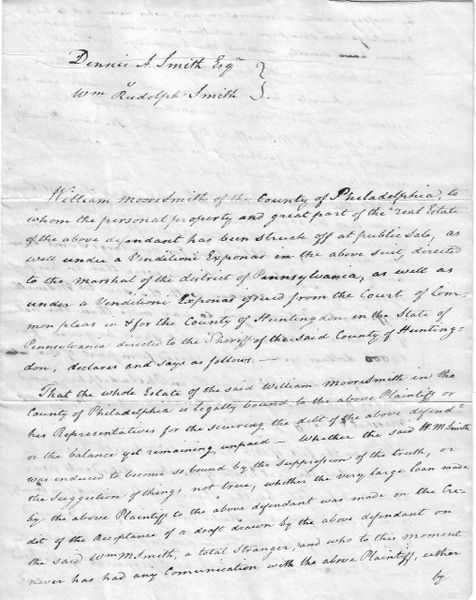 Dennis A Smith Esqr
v
Wm Rudolph Smith
William Moore Smith of the County of Philadelphia, to
whom the personal property and great part of the real Estate
of the above defendant has been struck off at public Sale, as
well under a Venditioni Exponas in the above suit, directed
to the marshal of the district of Pennsylvania, as well as
under a Venditioni Exponas issued from the Court of Com-
mon pleas in & for the County of Huntingdon in the State of
Pennsylvania directed to the Sheriff of the said County of Hunting-
don, declares and says as follows.—
That the whole Estate of the said William Moore Smith in the
County of Philadelphia is legally bound to the above Plaintiff or
his Representatives for the securing the debt of the above defendt
or the balance yet remaining unpaid — Whether the said W. M Smith
was induced to become so bound by the suppression of the truth, or
the suggestion of things not true, whether the very large loan made
by the above Plaintiff to the above defendant was made on the Cre-
dit of the acceptance of a draft drawn by the above defendant on
the said Wm M Smith, a total Stranger, and who to this moment
never has had any Comunication with the above Plaintiff, either
by